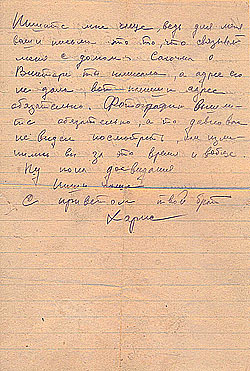 Пишите мне чаще, ведь для меня
ваши письма это то, что связывает
меня с домом. Сапочки о
ты писала, а адрес его
не дала, вот пиши адрес
обязательно. Фотографии
обязательно, а то давно вас
не видел посмотреть,
вы за это время и вообще
Ну пока досвидания
Пиши чаще
С приветом твой брат
Харис